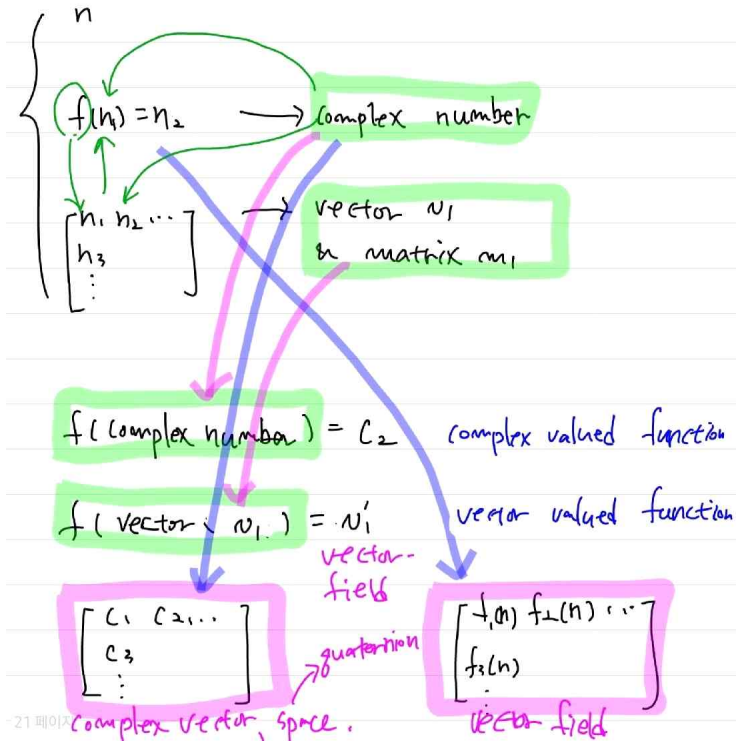 n
f(n₁) = n₂ → complex number
[n₁ n₂ ... → vector v₁
n₃ & matrix m₁
⋮ ]
f(complex number) = C₂ complex valued function
f(vector v₁) = v₁′ vector valued function
vector-
field
[C₁ C₂,.. [f₁(n) f₂(n) ...
C₃ quaternion f₃(n)
⋮ ] ⋮ ]
21 페이지 complex vector, space. vector field